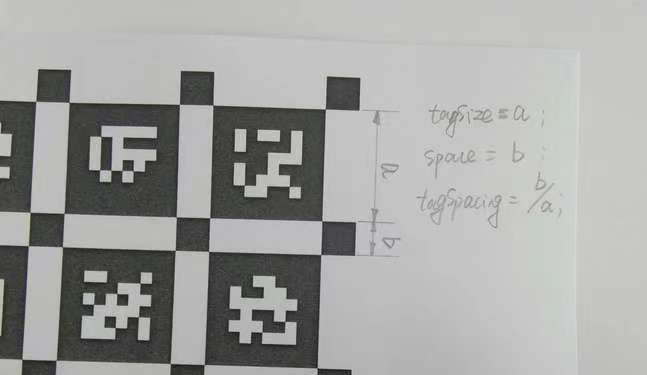 tagsize = a ;
space = b ;
tagspacing = b/a ;
a
b